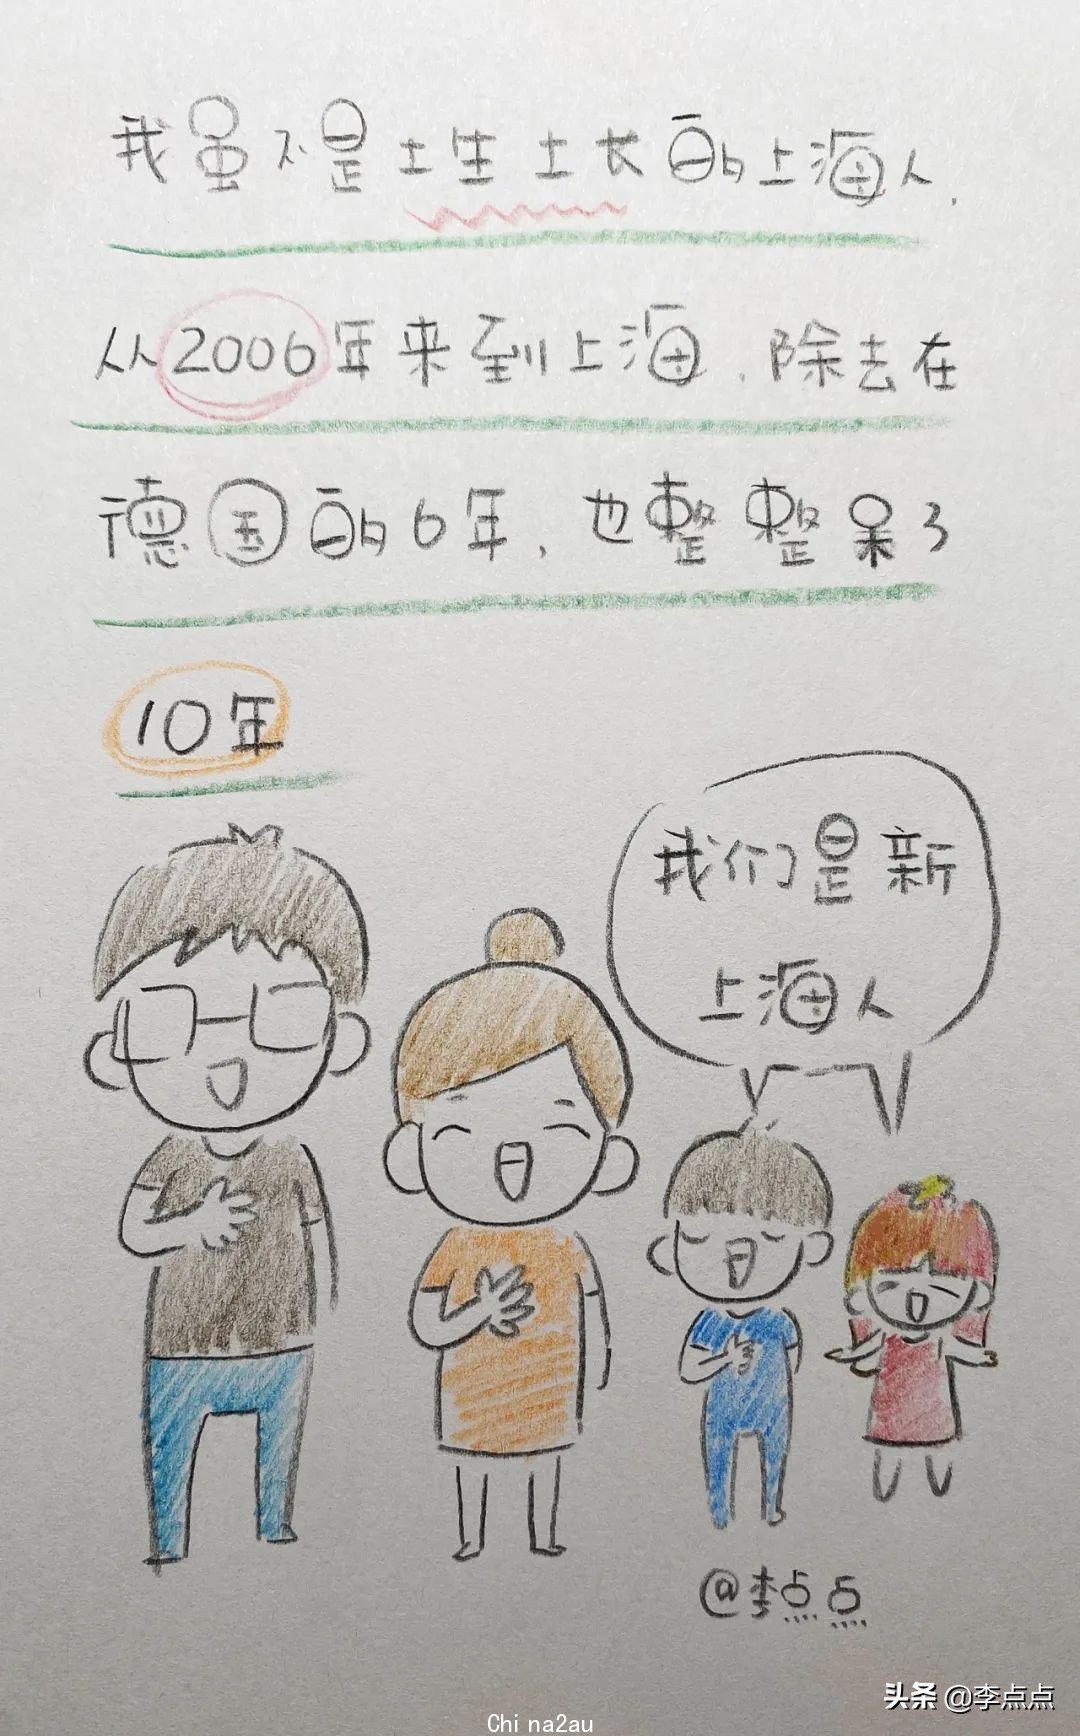 我虽不是土生土长的上海人，
从2006年来到上海，除去在
德国的6年，也整整呆了
10年
我们是新
上海人
@李点点
头条 @李点点
China2au